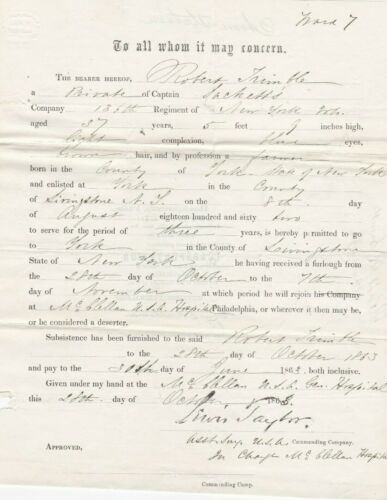 Ward 7
To all whom it may concern.
THE BEARER HEREOF, Robert Trimble
a Private of Captain Sackett's
Company 136th Regiment of New York Vols.
aged 37 years, 5 feet 9 inches high,
Light complexion, blue eyes,
brown hair, and by profession a farmer
born in the County of York State of New York
and enlisted at York in the County
of Livingstone N.Y. on the 8th day
of August eighteen hundred and sixty two
to serve for the period of three years, is hereby permitted to go
to York in the County of Livingstone
State of New York he having received a furlough from
the 28th day of October to the 7th
day of November at which period he will rejoin his Company
at McClellan U.S.A. Hospital Philadelphia, or wherever it then may be,
or be considered a deserter.
Subsistence has been furnished to the said Robert Trimble
to the 28th day of October 1863
and pay to the 30th day of June 1863, both inclusive.
Given under my hand at the McClellan U.S.A. Gen. Hospital
this 28th day of October 1863.
Lewis Taylor.
Asst. Surg. U.S.A. Commanding Company.
In Charge McClellan Hospital
APPROVED,
Commanding Comp.